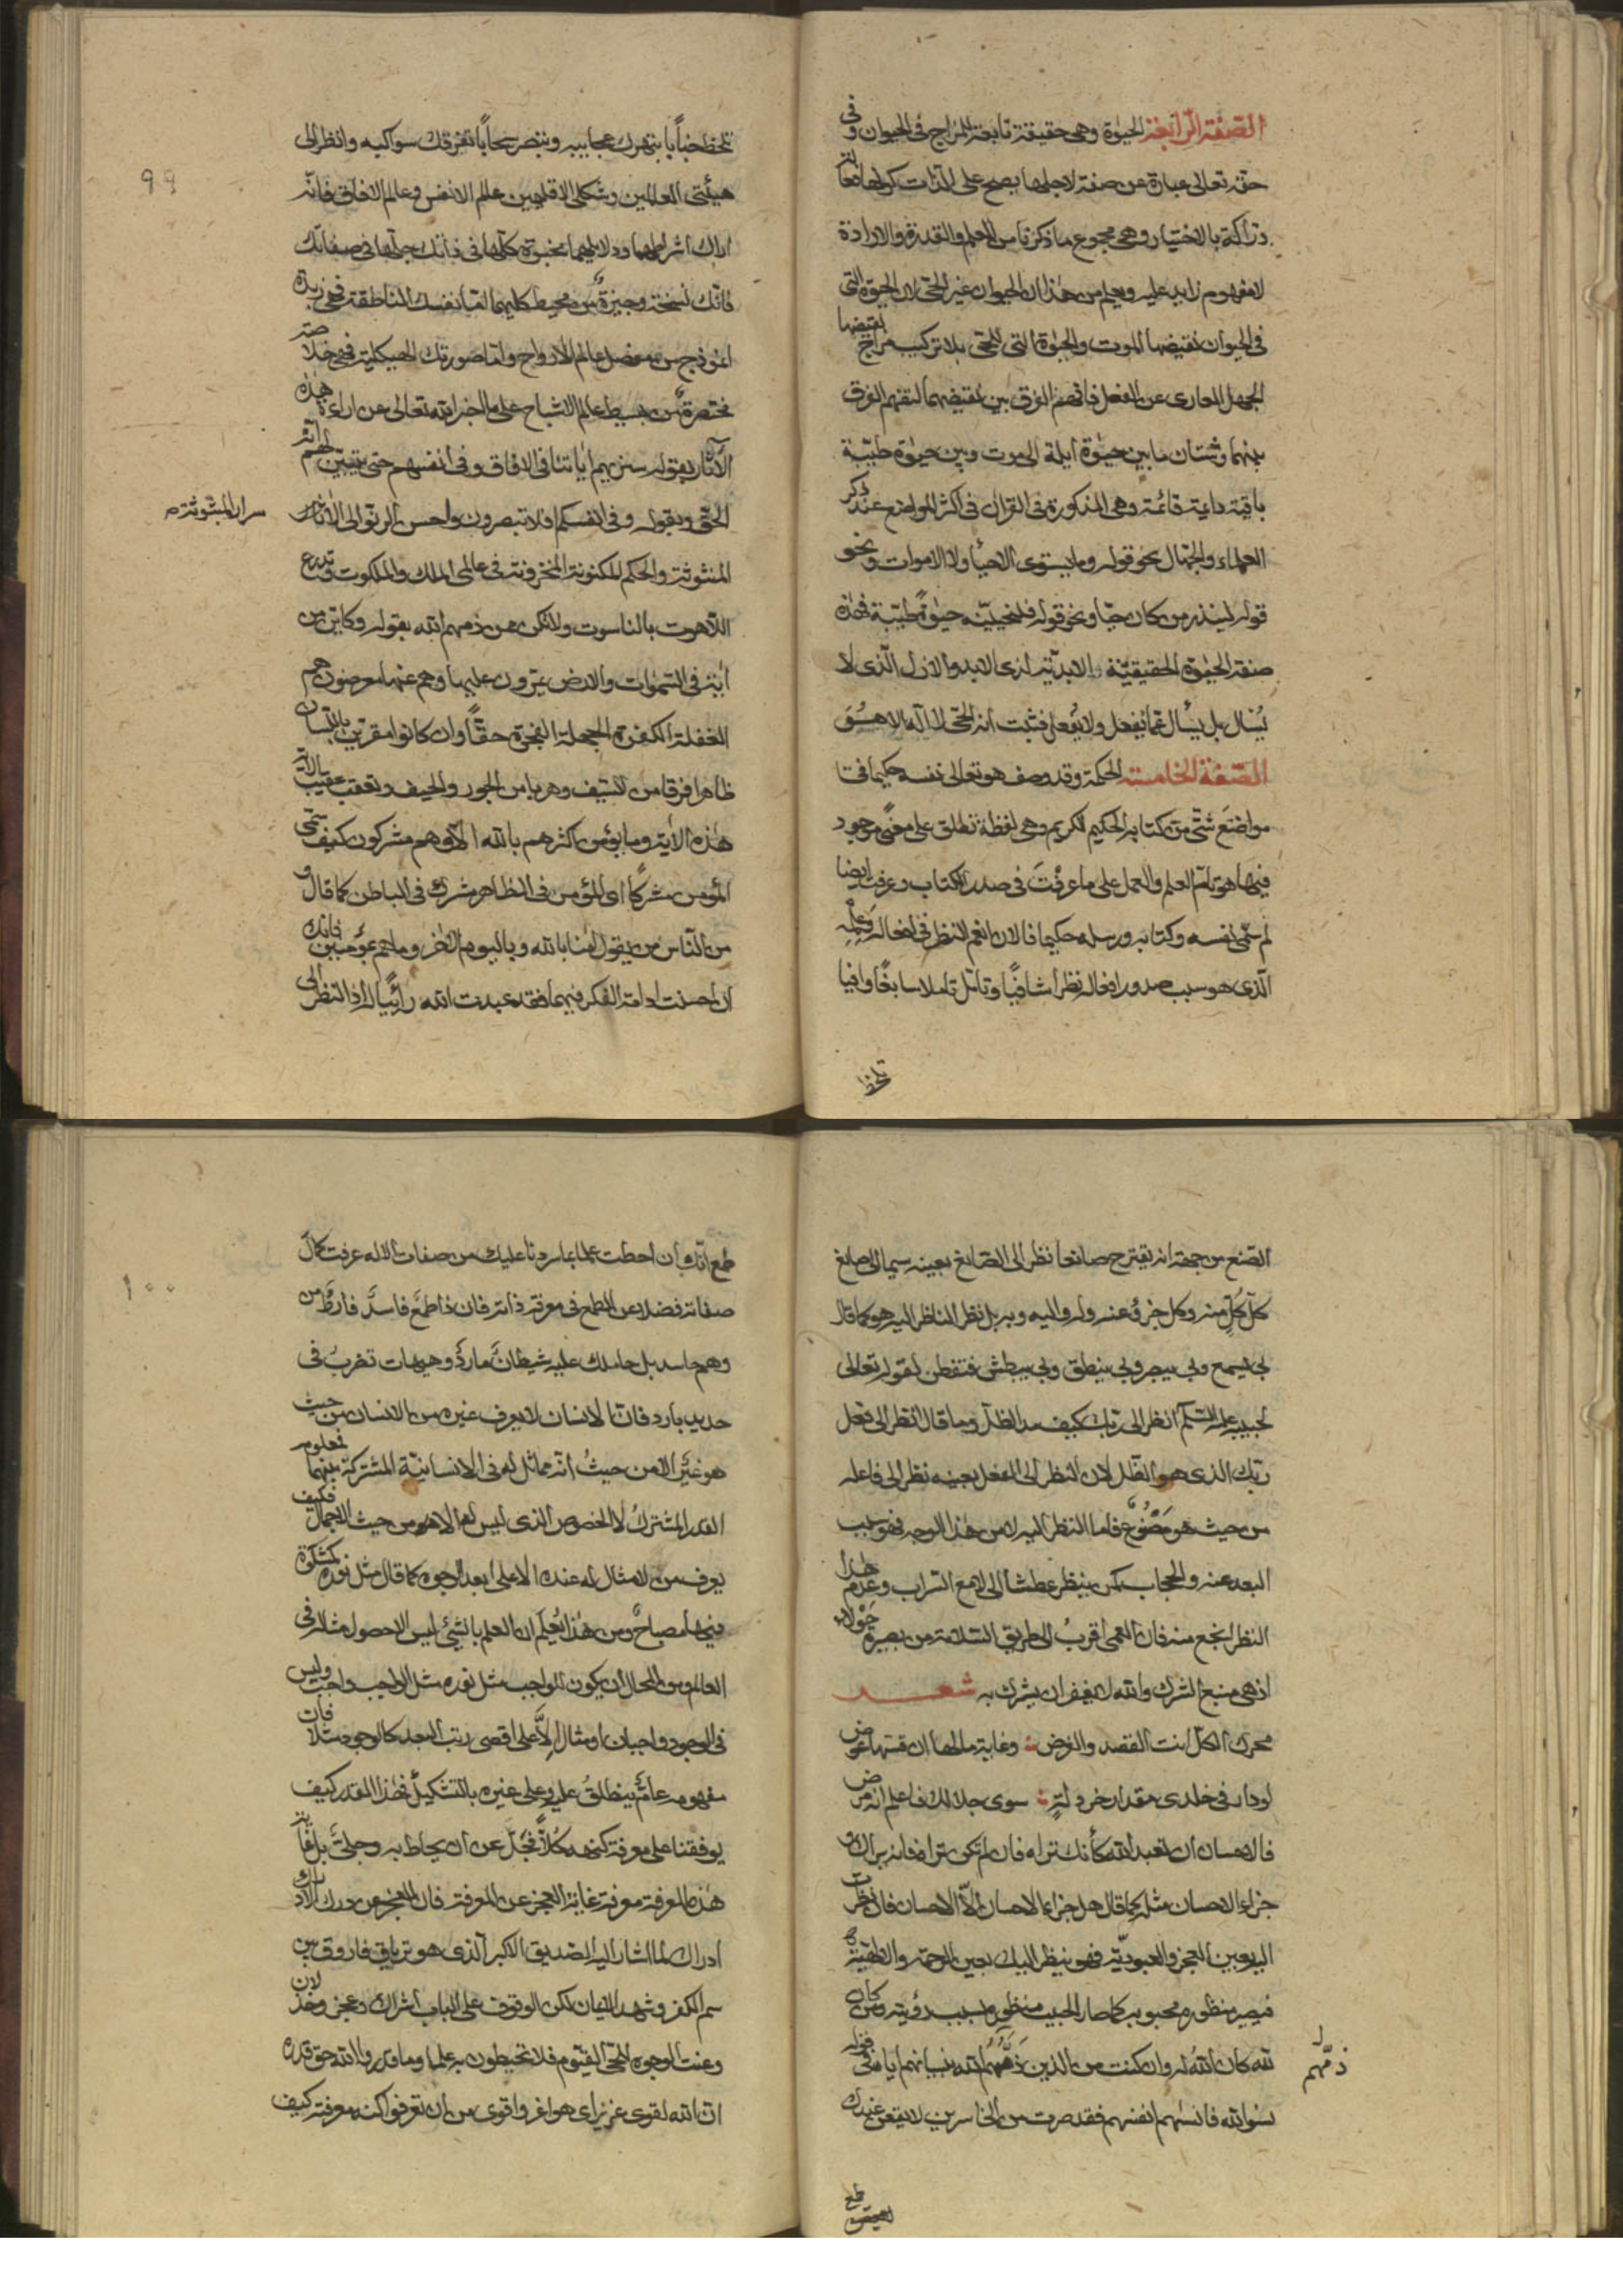 الصفة الرابعة الحيوة وهي حقيقة تابعة للمزاج في الحيوان وفي
حقه تعالى عبارة عن صفة لاجلها يصح على الذات كونها فعالة
دراكة بالاختيار وهي مجموع ما ذكرنا من العلم والقدرة والارادة
لا مفهوم زايد عليه ويعلم من هذا ان الحيوان غير الحي لان الحيوة التي
في الحيوان نقيضها الموت والحيوة التي للحي بلا تركيب مزاج نقيضها
الجهل العاري عن الفعل فافهم الفرق بين نقيضهما لتفهم الفرق
بينهما وشتان ما بين حيوة ايلة الى موت وبين حيوة طيبة
باقية دايمة قائمة وهي المذكورة في القرآن في اكثر المواضع عند ذكر
العلماء والجهال نحو قوله وما يستوى الاحياء ولا الاموات ونحو
قوله لينذر من كان حيا ونحو قوله فلنحيينه حيوة طيبة فهذه
صفة الحيوة الحقيقية الابدية لذى الابد والازل الذى لا
يسال بل يسأل عما يفعل ولا يفعل فثبت انه الحي لا اله الا هو
الصفة الخامسة الحكمة وقد وصف هو تعالى نفسه حكيما في
مواضع شتى من كتابه الحكيم الكريم وهي لفظة تطلق على معنى موجود
فيها هو تمام العلم والعمل على ما عرفت في صدر الكتاب وعرفت ايضا
لم سمى نفسه وكتابه ورسله حكيما فالان انعم النظر في افعاله وعلمه
الذى هو سبب صدور افعاله نظرا شافيا وتامل تاملا سابغا وافيا
تلحظ
تلحظ جنابا يبهرك عجايبه وتبصر سحابا تغرقك سواكبه وانظر الى
هيئتي العالمين وشكلى الاقليمين عالم الانفس وعالم الافاق فانه
اراك اشراطهما ودلايلهما مخبوة كلها في ذاتك جلها في صفاتك
فانك نسخة وجيزة من محيط كليهما اما نفسك الناطقة فهي زبدة
انموذج من مفصل عالم الارواح واما صورتك الهيكلية فهي خلاصة
مختصرة من بسيط عالم الاشباح على ما اخبر الله تعالى عن اراءة هذه
الآثار بقوله سنريهم اياتنا في الافاق وفي انفسهم حتى يتبين لهم انه
الحق وبقوله وفي انفسكم افلا تبصرون واحسن الرنو الى الاثار
سرار المبثوثة
المبثوثة والحكم المكنونة المخزونة في عالمى الملك والملكوت وتدرع
اللاهوت بالناسوت ولا تكن ممن ذمهم الله بقوله وكاين من
اية في السموات والارض يمرون عليها وهم عنها معرضون هم
الغفلة الكفرة الجهلة الفجرة حقا وان كانوا مقرين باللسان
ظاهرا فرقا من السيف وهربا من الجور والحيف وتعقب عقيب
هذه الاية وما يؤمن اكثرهم بالله الا وهم مشركون كيف سمى
المؤمن مشركا اى المؤمن في الظاهر مشرك في الباطن كما قال و
من الناس من يقول امنا بالله وباليوم الاخر وما هم بمؤمنين فانك
ان احسنت ادامة الفكر فيهما فقد عبدت الله رائيا له اذ النظر الى
99
الصنع من جهة انه يقترح صانعا نظر الى الصانع بعينه سيما الى صانع
كل كل منه وكل جزؤ عنه وله واليه وبه بل نظر الناظر اليه هو كما قال
بي يسمع وبي يبصر وبي ينطق وبي يبطش فتفطن لقوله تعالى
لحبيبه عليه السلم انظر الى ربك كيف مد الظل وما قال انظر الى فعل
ربك الذى هو الظل لان النظر الى الفعل بعينه نظر الى فاعله
من حيث هو مصنوع فاما النظر اليه لا من هذا الوجه فهو سبب
البعد عنه والحجاب كمن ينظر عطشا الى لامع السراب وعدم هذا
النظر انجع منه فان العمى اقرب الى طريق السلامة من بصيرة حولاء
اذ هي منبع الشرك والله لا يغفر ان يشرك به شعر
محرك الكل انت القصد والغرض وغاية مالها ان قستها عوض
لو دار في خلدى مقدار خردلة سوى جلالك فاعلم انه مرض
فالاحسان ان تعبد الله كأنك تراه فان لم تكن تراه فانه يراك و
جزاء الاحسان مثله كما قال هل جزاء الاحسان الا الاحسان فان نظرت
اليه بعين العجز والعبودية فهو ينظر اليك بعين الرحمة والالهية
فيصير منظوره محبوبه كما صار الحبيب منظوره بسبب رؤيته ومن كان
لله كان الله له وان كنت من الذين ذمهم الله بنسيانهم اياه في قوله
ذمهم
نسوا الله فانسيهم انفسهم فقد صرت من الخاسرين لا يقعن عندك
طمع
طمع انك ان احطت علما بما سردنا عليك من صفات الاله عرفت كمال
صفاته فضلا عن الطمع في معرفة ذاته فان ذا طمع فاسد فارط من
وهم حاسد بل حاملك عليه شيطان مارد وهيهات تضرب في
حديد بارد فان الانسان لا يعرف غيره من الانسان من حيث
هو غير الا من حيث انه مماثل له في الانسانية المشتركة بينهما فمعلوم
القدر المشترك لا الخصوص الذى ليس لها الا هو من حيث الاجمال فكيف
يعرف من لا مثال له عنده الا على ابعد الوجوه كما قال مثل نوره كمشكوة
فيها مصباح ومن هذا يعلم ان العلم بالشيء ليس الا حصول مثله في
العالم ومن المحال ان يكون للواجب مثل نوره مثل الواجب واجب وليس
في الوجود واجبان او مثال الا على اقصى رتب البعد كالوجود مثلا فان
مفهومه عام ينطلق عليه وعلى غيره بالتشكيك فهذا القدر كيف
يوقفنا على معرفة كنهه كلا فجل عن ان يحاط به وجلت بل غاية
هذه المعرفة معرفة غاية العجز عن المعرفة فان العجز عن درك الادراك
ادراك لما اشار اليه الصديق الاكبر الذى هو ترياق فاروق من
سم الكفر وشهد الايمان لكن الوقوف على الباب اشراك وعجز وخذلان
وعنت الوجوه للحى القيوم فلا تحيطون به علما وما قدروا الله حق قدره
ان الله لقوى عزيز اى هو اعز واقوى من ان تعرفوا كنه معرفته كيف
١٠٠